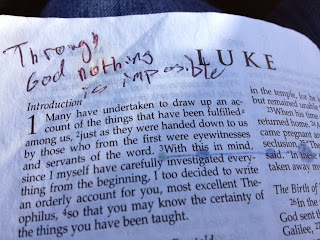 Through
God nothing
is imposible
LUKE
Introduction
1 Many have undertaken to draw up an ac-
count of the things that have been fulfilled a
among us, 2just as they were handed down to us
by those who from the first were eyewitnesses
and servants of the word. 3With this in mind,
since I myself have carefully investigated every-
thing from the beginning, I too decided to write
an orderly account for you, most excellent The-
ophilus, 4so that you may know the certainty of
the things you have been taught.
in the temple, for he
but remained unable
23When his time
returned home. 24
came pregnant an
seclusion. 25"The
said. "In these
taken away m
The Birth of
26In the
God sent th
Galilee, 27